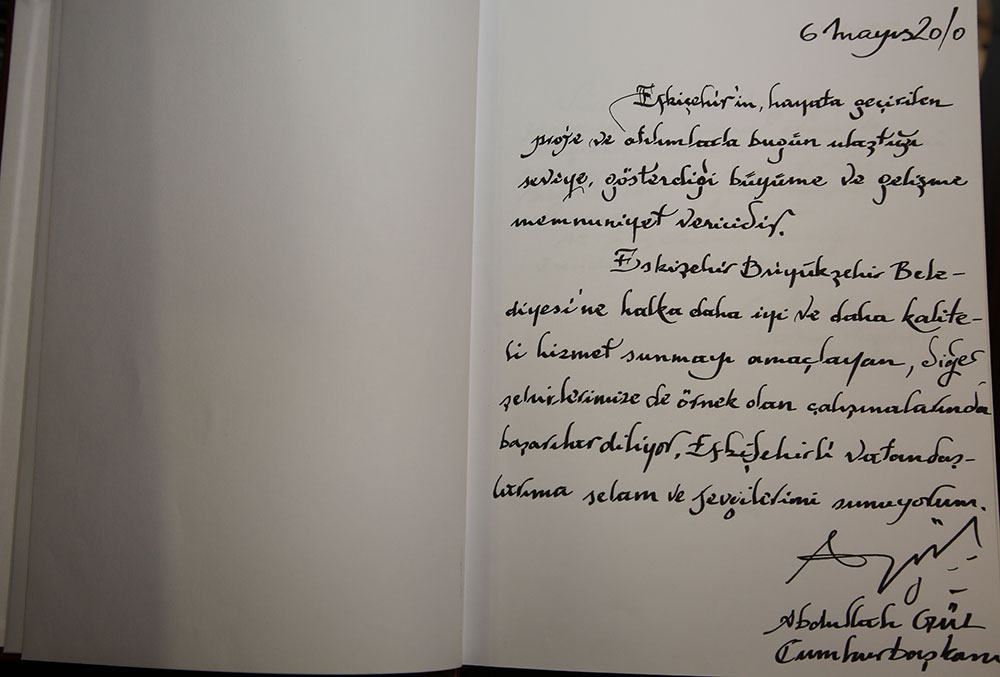 6 Mayıs 2010
Eskişehir'in, hayata geçirilen
proje ve atılımlarla bugün ulaştığı
seviye, gösterdiği büyüme ve gelişme
memnuniyet vericidir.
Eskişehir Büyükşehir Bele-
diyesi'ne halka daha iyi ve daha kalite-
li hizmet sunmayı amaçlayan, diğer
şehirlerimize de örnek olan çalışmalarında
başarılar diliyor, Eskişehirli vatandaş-
larıma selam ve sevgilerimi sunuyorum.
A Gül
Abdullah GÜL
Cumhurbaşkanı